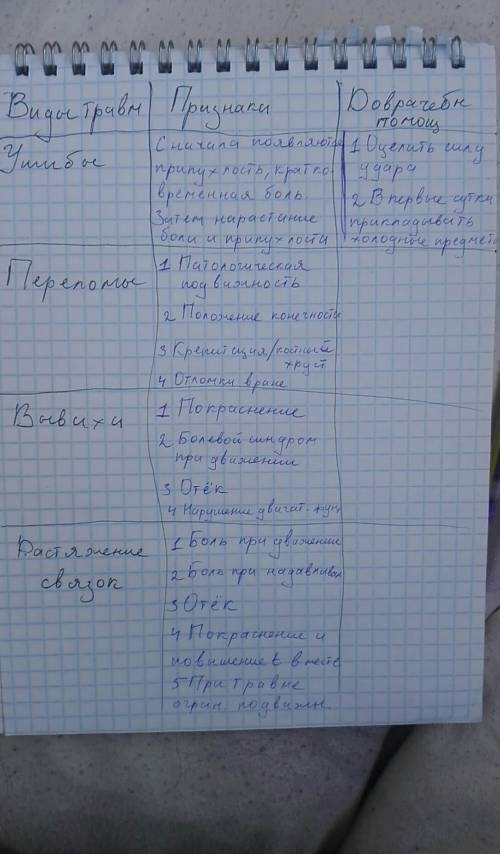 Виды травм
Признаки
Доврачебн
помощ
Ушибы
Сначала появляются
припухлость, кратко
временная боль
Затем нарастание
боли и припухлости
1 Оценить силу
удара
2 В первые сутки
прикладывать
холодные предметы
Переломы
1 Патологическая
подвижность
2 Положение конечности
3 Крепитация/костный
хруст
4 Отломки в ране
Вывихи
1 Покраснение
2 Болевой синдром
при движении
3 Отёк
4 Нарушение двигат. фун
Растяжение
связок
1 Боль при движении
2 Боль при надавливан
3 Отёк
4 Покраснение и
повышение t в месте
5 При травме
огран. подвижн